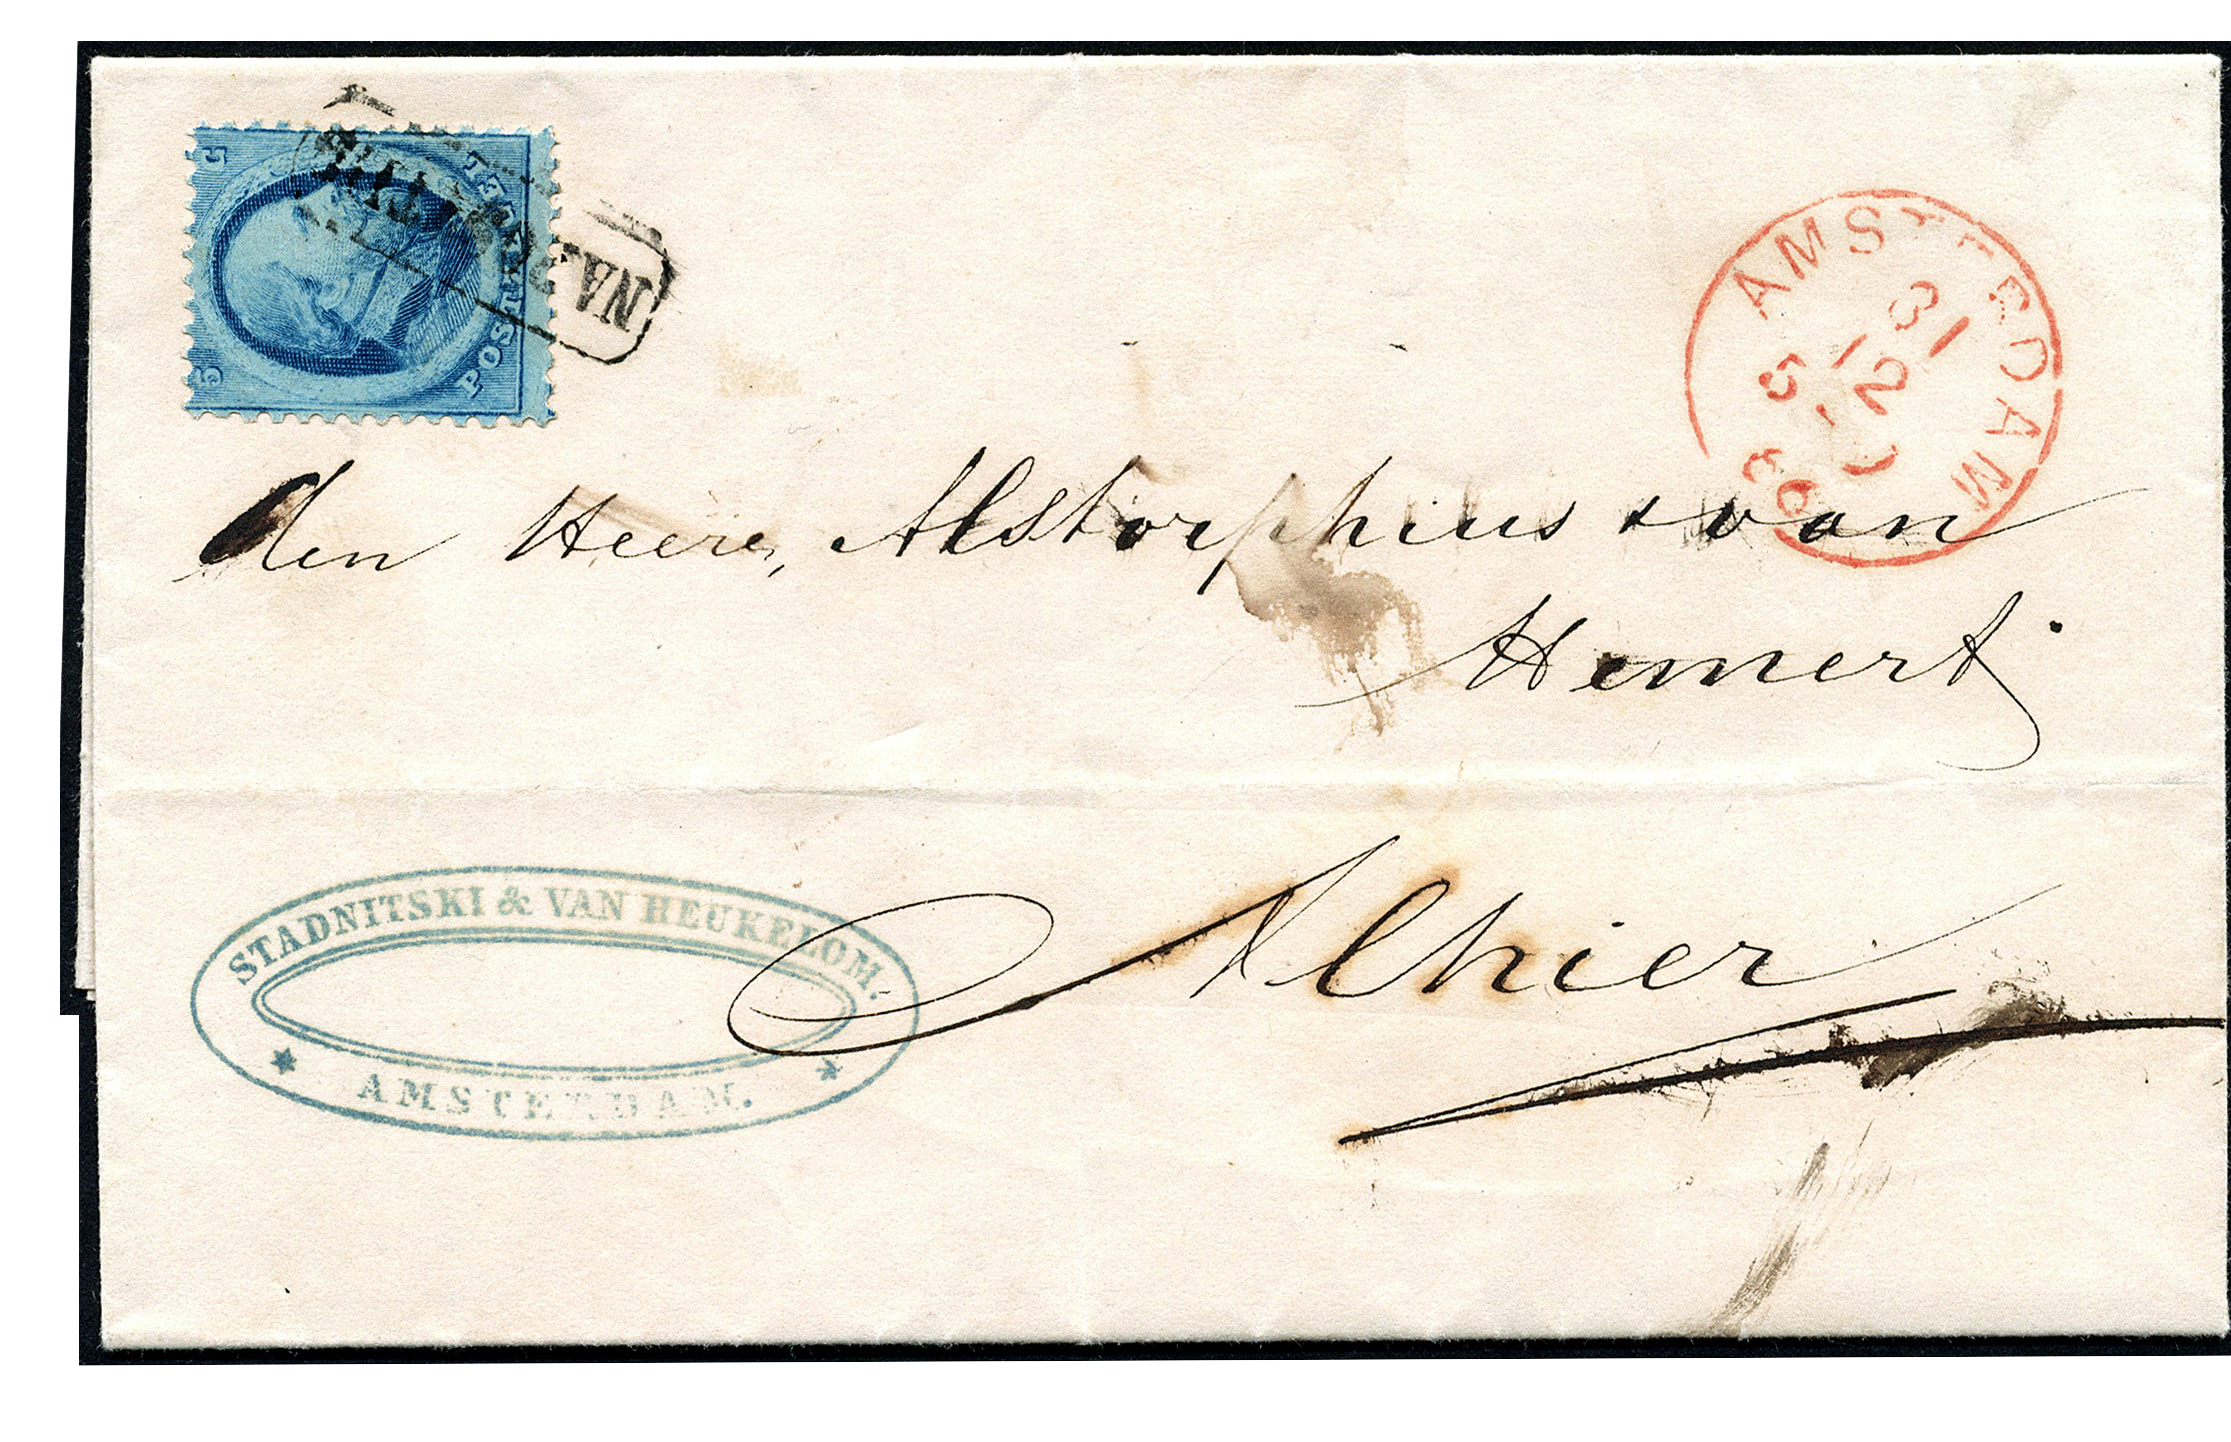 5
POSTZEGEL
5
NA POSTTIJD
AMSTERDAM
31
12
5
66
den Heere, Alstorphius & van
Hemert.
Alhier
STADNITSKI & VAN HEUKELOM.
* AMSTERDAM. *